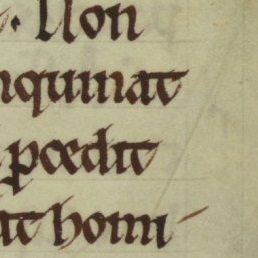 . Non
nquinat
ꝓcedit
at homi-